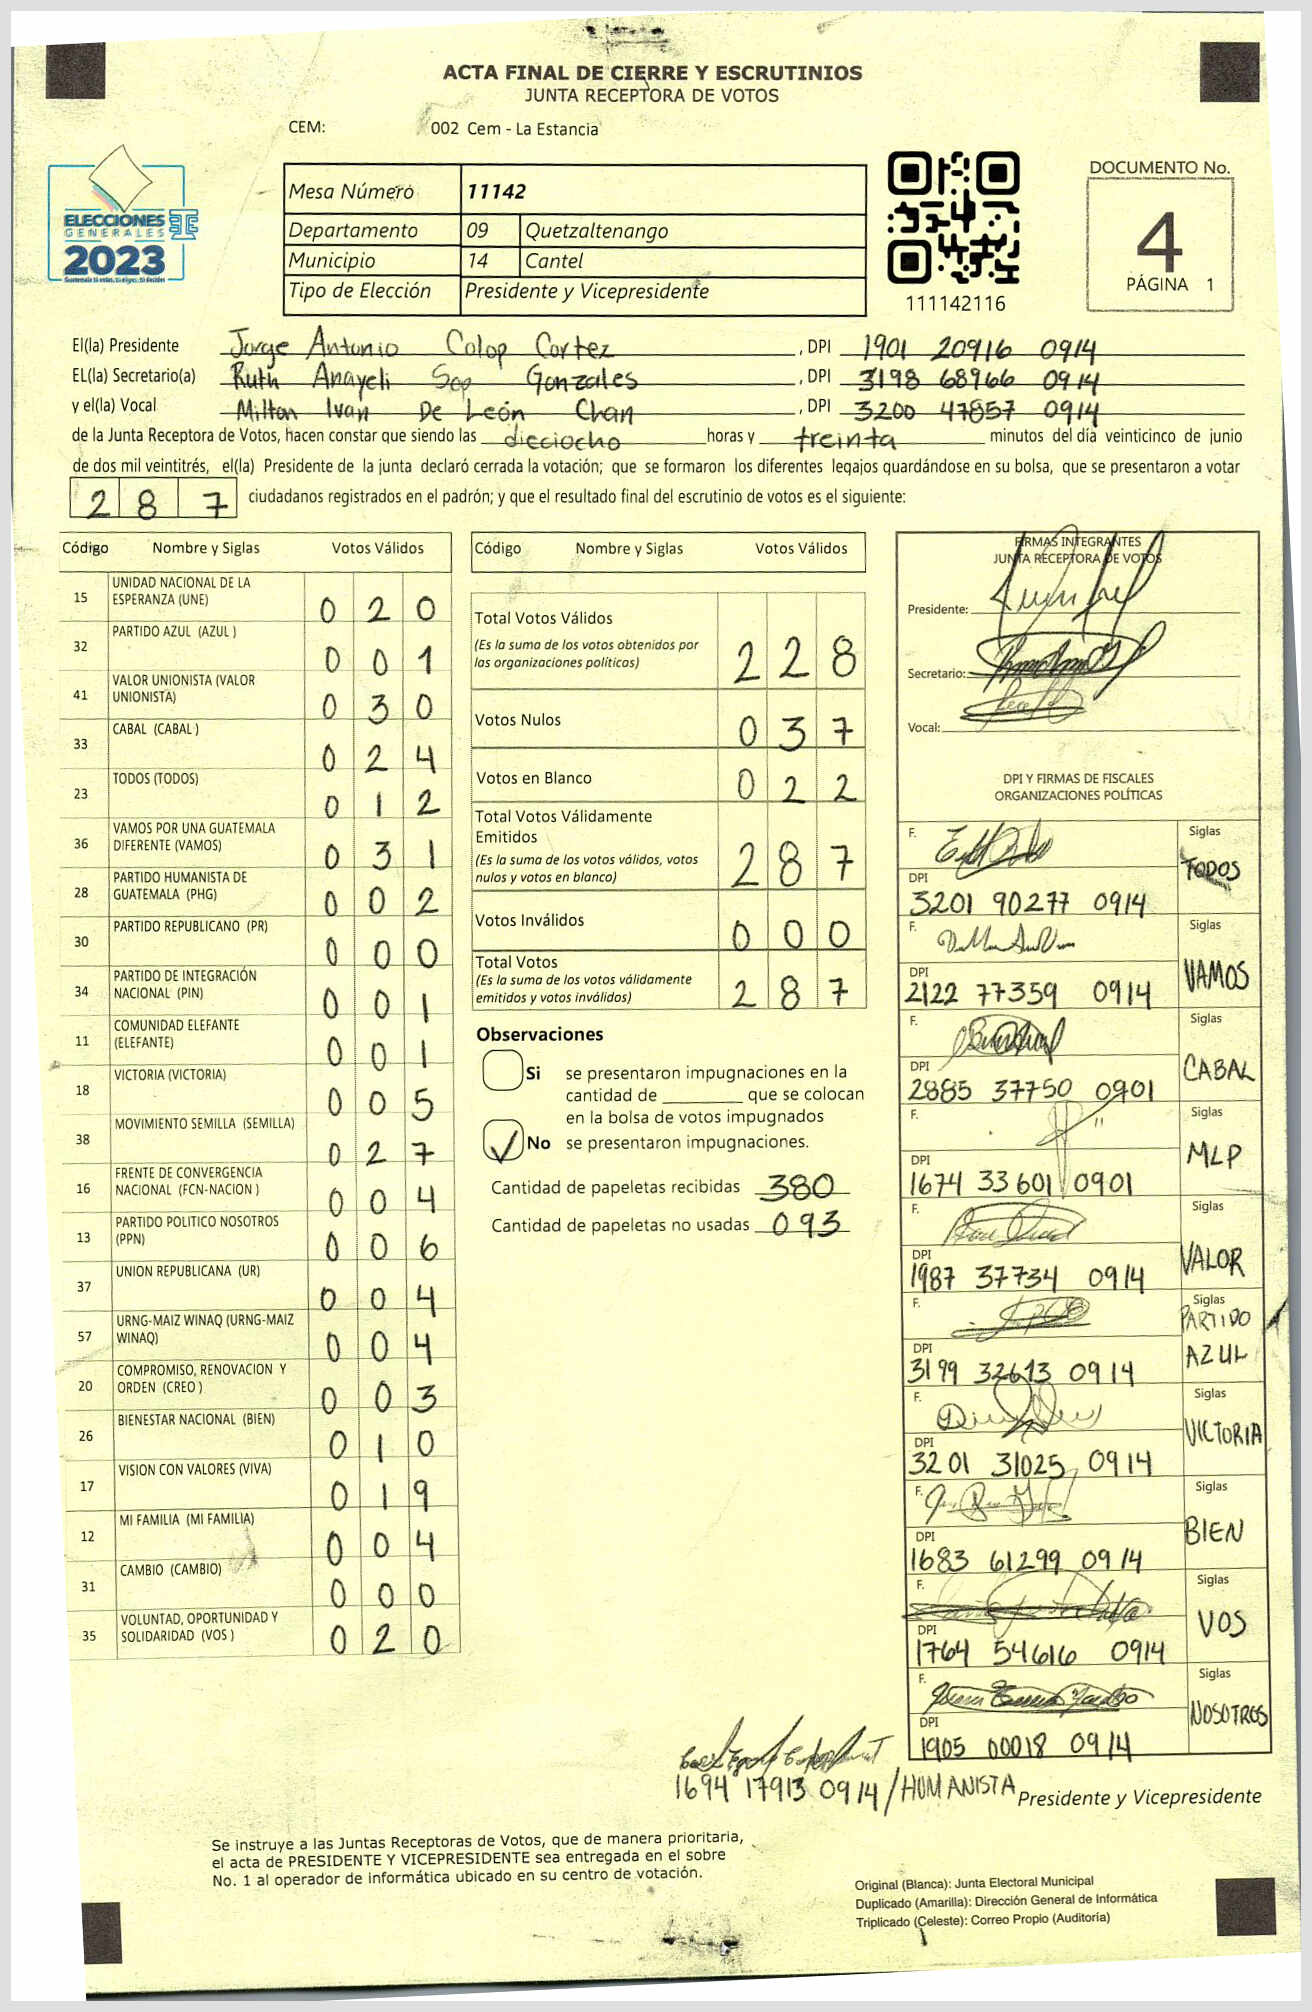 ACTA FINAL DE CIERRE Y ESCRUTINIOS
JUNTA RECEPTORA DE VOTOS
CEM: 002 Cem - La Estancia
ELECCIONES
GENERALES
2023
Mesa Número 11142
Departamento 09 Quetzaltenango
Municipio 14 Cantel
Tipo de Elección Presidente y Vicepresidente
111142116
DOCUMENTO No.
4
PÁGINA 1
El(la) Presidente Jorge Antonio Colop Cortez, DPI 1901 20916 0914
EL(la) Secretario(a) Ruth Anayeli Sop Gonzales, DPI 3198 68966 0914
y el(la) Vocal Milton Ivan De León Chan, DPI 3200 47857 0914
de la Junta Receptora de Votos, hacen constar que siendo las dieciocho horas y treinta minutos del día veinticinco de junio
de dos mil veintitrés, el(la) Presidente de la junta declaró cerrada la votación; que se formaron los diferentes legajos quardándose en su bolsa, que se presentaron a votar
287 ciudadanos registrados en el padrón; y que el resultado final del escrutinio de votos es el siguiente:
Código Nombre y Siglas Votos Válidos
15 UNIDAD NACIONAL DE LA ESPERANZA (UNE) 020
32 PARTIDO AZUL (AZUL ) 001
41 VALOR UNIONISTA (VALOR UNIONISTA) 030
33 CABAL (CABAL ) 024
23 TODOS (TODOS) 012
36 VAMOS POR UNA GUATEMALA DIFERENTE (VAMOS) 031
28 PARTIDO HUMANISTA DE GUATEMALA (PHG) 002
30 PARTIDO REPUBLICANO (PR) 000
34 PARTIDO DE INTEGRACIÓN NACIONAL (PIN) 001
11 COMUNIDAD ELEFANTE (ELEFANTE) 001
18 VICTORIA (VICTORIA) 005
38 MOVIMIENTO SEMILLA (SEMILLA) 027
16 FRENTE DE CONVERGENCIA NACIONAL (FCN-NACION ) 004
13 PARTIDO POLITICO NOSOTROS (PPN) 006
37 UNION REPUBLICANA (UR) 004
57 URNG-MAIZ WINAQ (URNG-MAIZ WINAQ) 004
20 COMPROMISO, RENOVACION Y ORDEN (CREO ) 003
26 BIENESTAR NACIONAL (BIEN) 010
17 VISION CON VALORES (VIVA) 019
12 MI FAMILIA (MI FAMILIA) 004
31 CAMBIO (CAMBIO) 000
35 VOLUNTAD, OPORTUNIDAD Y SOLIDARIDAD (VOS ) 020
Código Nombre y Siglas Votos Válidos
Total Votos Válidos
(Es la suma de los votos obtenidos por
las organizaciones políticos) 228
Votos Nulos 037
Votos en Blanco 022
Total Votos Válidamente
Emitidos
(Es la suma de los votos válidos, votos
nulos y votos en blanco) 287
Votos Inválidos 000
Total Votos
(Es la suma de los votos válidamente
emitidos y votos inválidos) 287
Observaciones
Si se presentaron impugnaciones en la
cantidad de ________ que se colocan
en la bolsa de votos impugnados
✓ No se presentaron impugnaciones.
Cantidad de papeletas recibidas 380
Cantidad de papeletas no usadas 093
FIRMAS INTEGRANTES
JUNTA RECEPTORA DE VOTOS
Presidente:
Secretario:
Vocal:
DPI Y FIRMAS DE FISCALES
ORGANIZACIONES POLÍTICAS
F. Siglas
DPI TODOS
3201 90277 0914
F. Siglas
DPI VAMOS
2122 77359 0914
F. Siglas
DPI CABAL
2885 37750 0901
F. Siglas
DPI MLP
1674 33601 0901
F. Siglas
DPI VALOR
1987 37734 0914
F. Siglas
DPI PARTIDO AZUL
3199 32613 0914
F. Siglas
DPI VICTORIA
3201 31025 0914
F. Siglas
DPI BIEN
1683 61299 0914
F. Siglas
DPI VOS
1764 54616 0914
F. Siglas
DPI NOSOTROS
1905 00018 0914
1694 17913 0914 / HUMANISTA
Presidente y Vicepresidente
Se instruye a las Juntas Receptoras de Votos, que de manera prioritaria,
el acta de PRESIDENTE Y VICEPRESIDENTE sea entregada en el sobre
No. 1 al operador de informática ubicado en su centro de votación.
Original (Blanca): Junta Electoral Municipal
Duplicado (Amarilla): Dirección General de Informática
Triplicado (Celeste): Correo Propio (Auditoría)